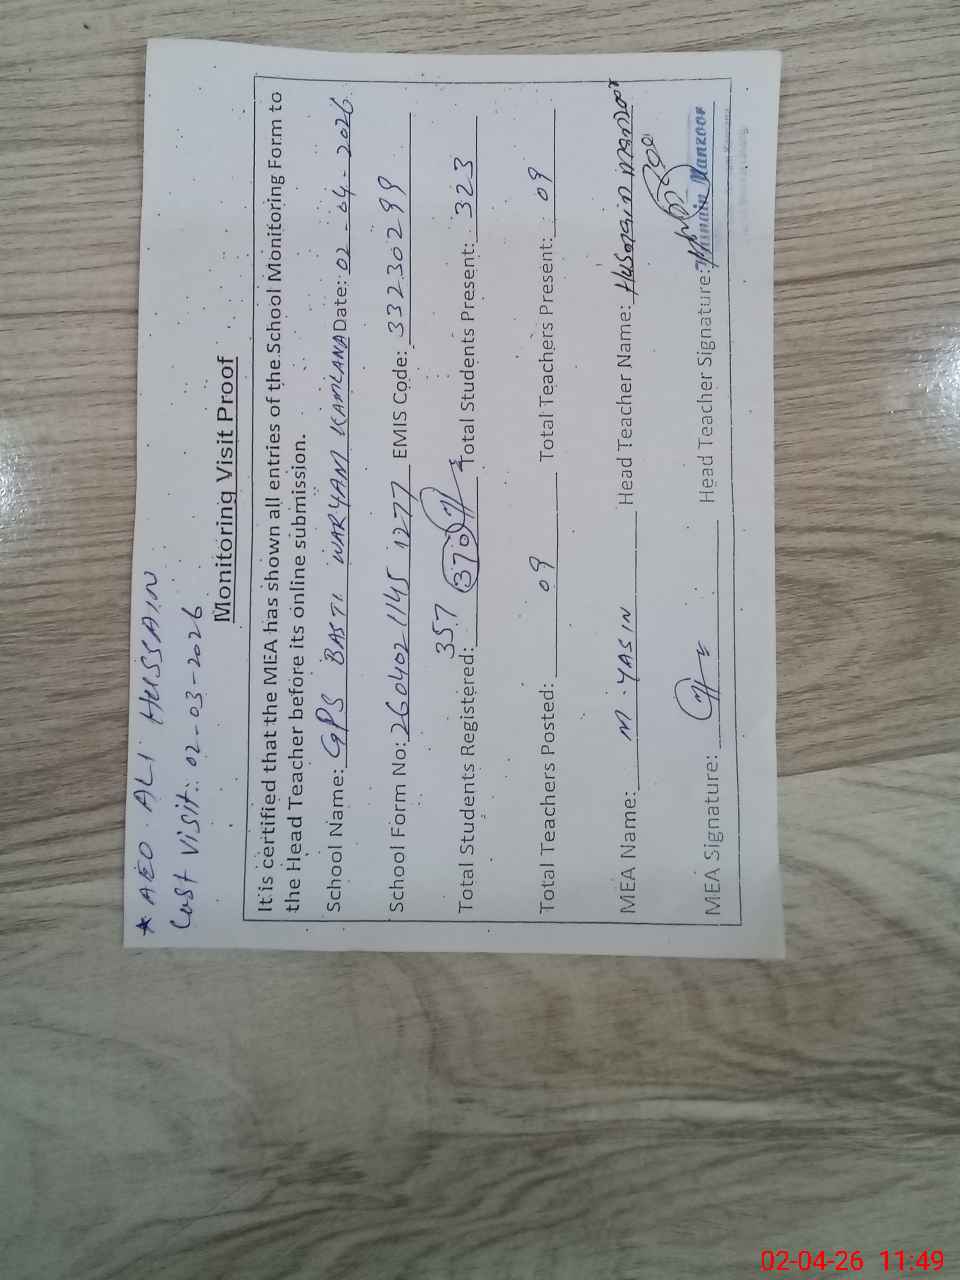 * AEO. ALI HUSSAIN
Last Visit: 02-03-2026
Monitoring Visit Proof
It is certified that the MEA has shown all entries of the School Monitoring Form to
the Head Teacher before its online submission.
School Name: GPS BASTI WARYAM KAMLANA Date: 02-04-2026
School Form No: 2604021145 1277 EMIS Code: 33230299
Total Students Registered: 357 370 Total Students Present: 323
Total Teachers Posted: 09 Total Teachers Present: 09
MEA Name: M. YASIN Head Teacher Name: Husnain Manzoor
MEA Signature: Head Teacher Signature:
Husnain Manzoor
02-04-26 11:49